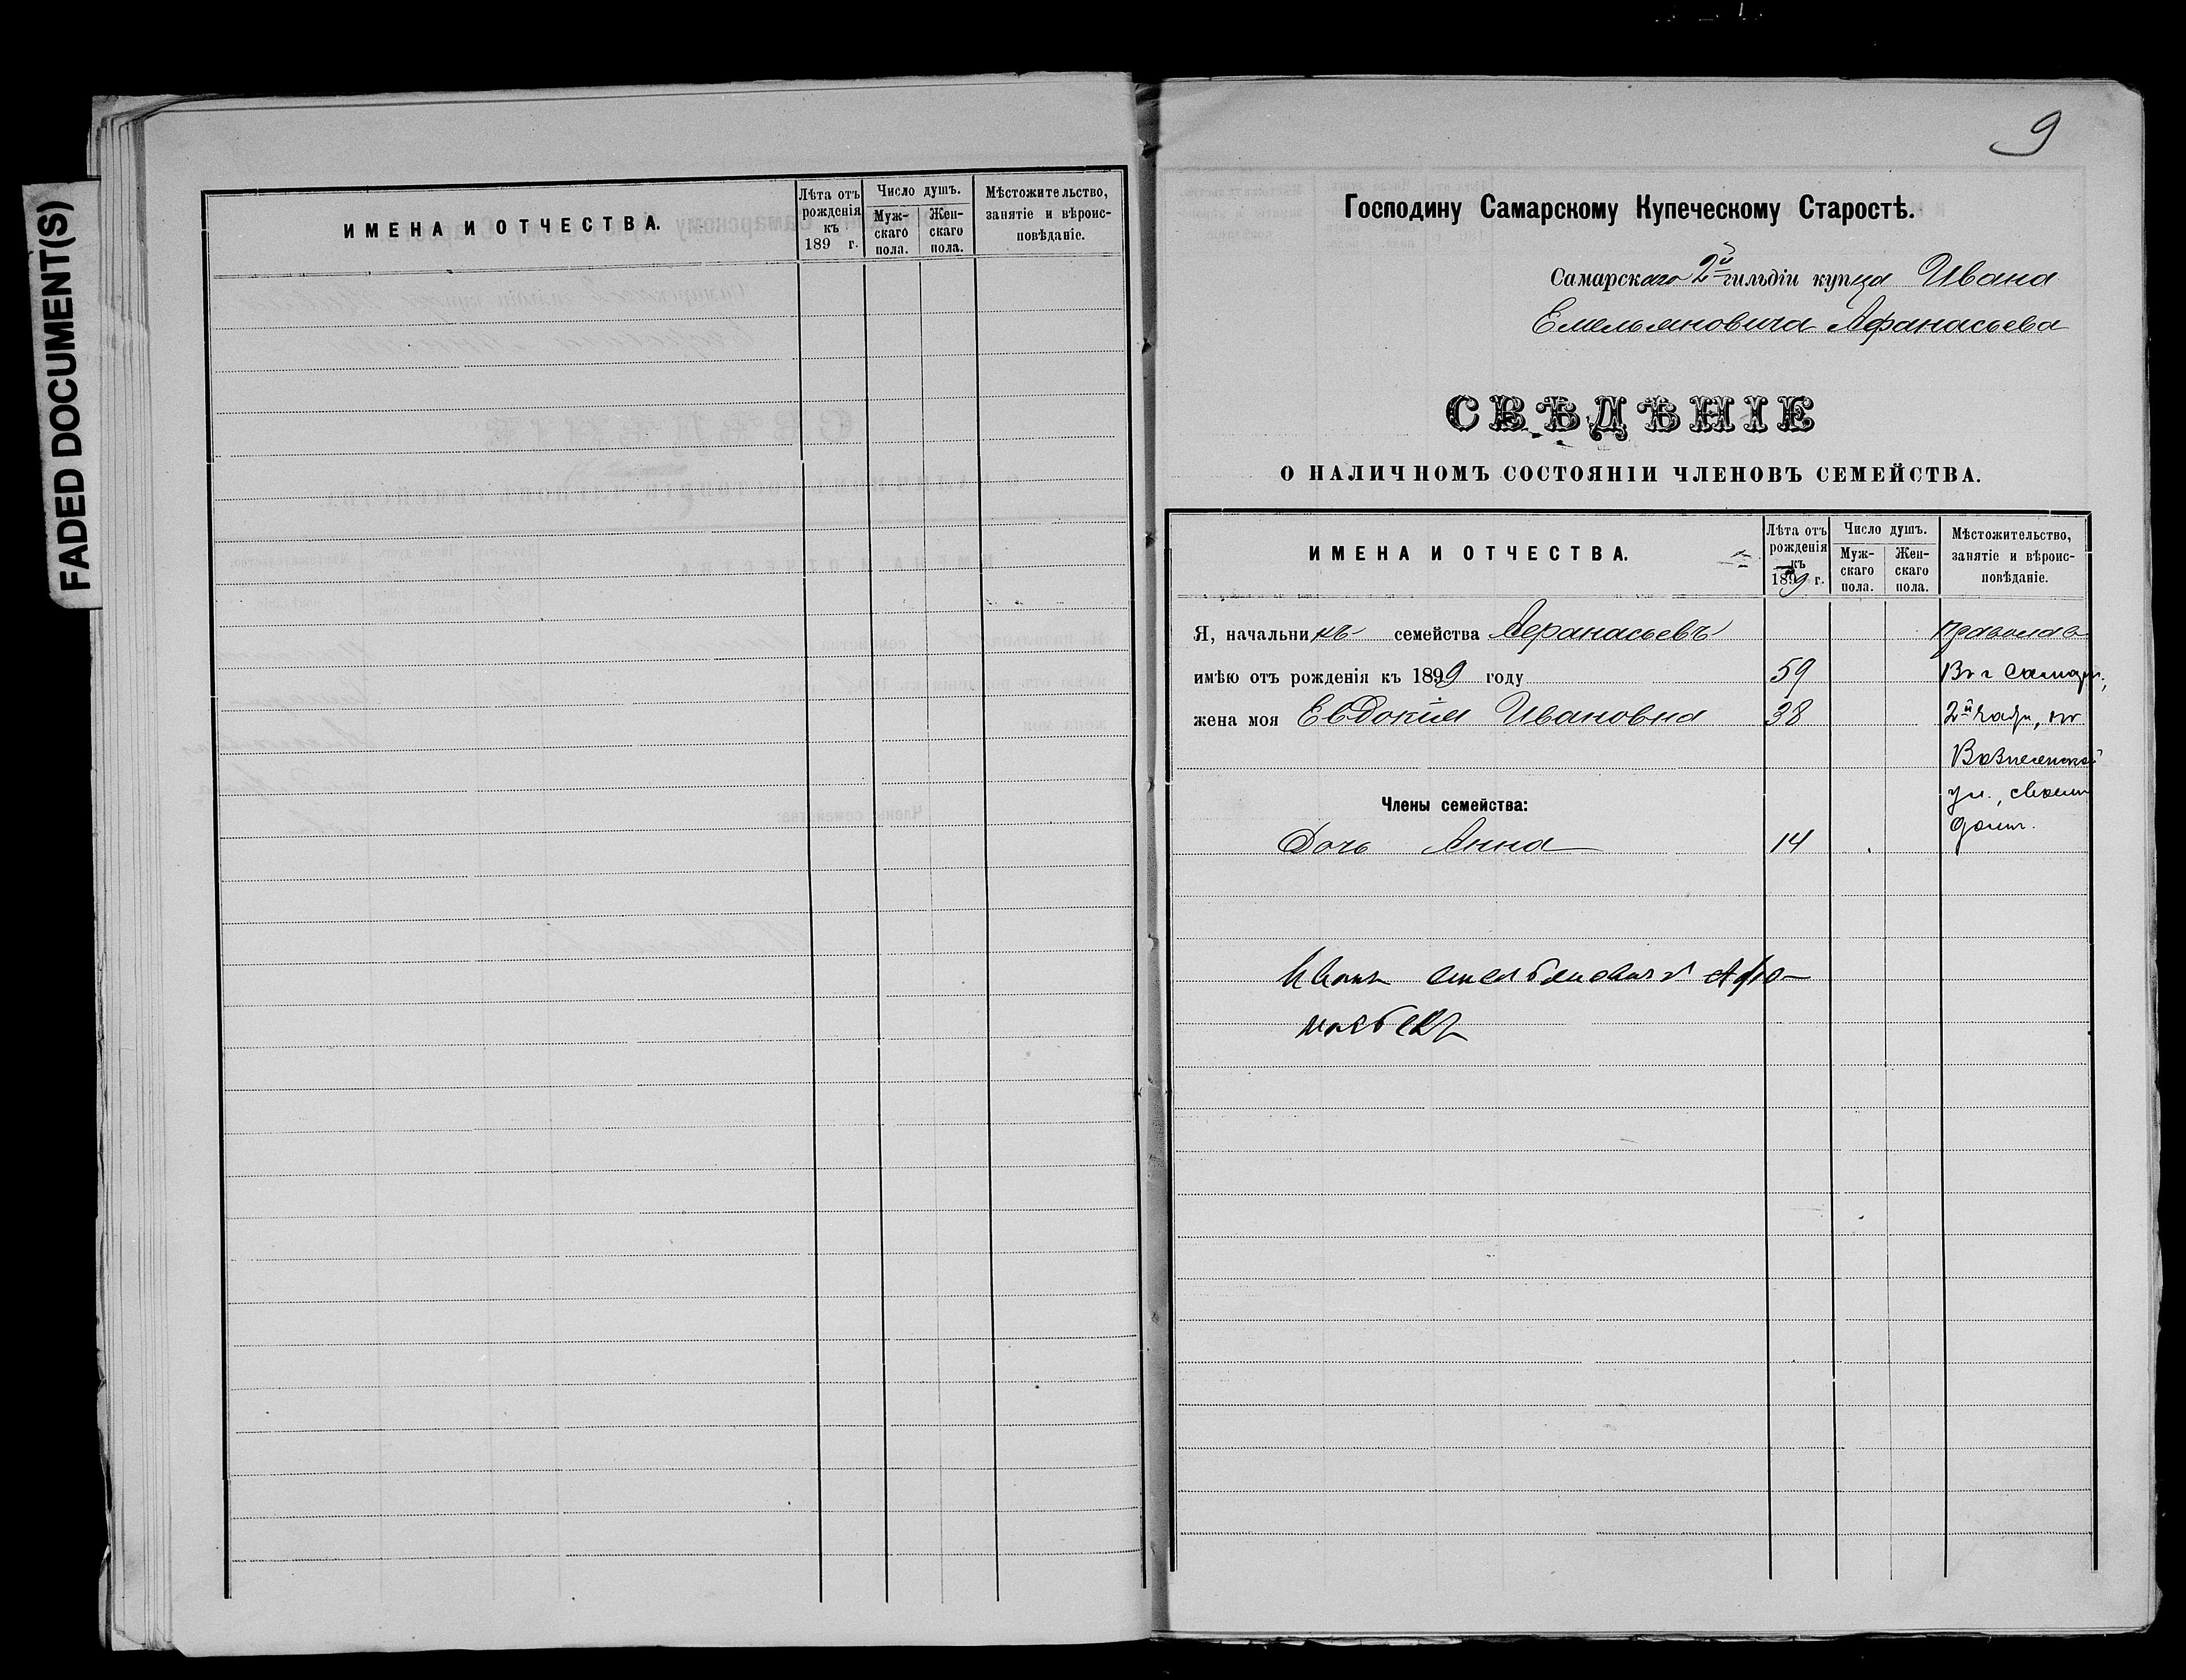 FADED DOCUMENT(S)
ИМЕНА И ОТЧЕСТВА.
Лѣта отъ рожденія къ 189 г.
Число душъ.
Мужскаго пола.
Женскаго пола.
Мѣстожительство, занятіе и вѣроисповѣданіе.
9
Господину Самарскому Купеческому Старостѣ.
Самарскаго 2й гильдіи купца Ивана
Емельяновича Афанасьева
СВѢДѢНІЕ
О НАЛИЧНОМЪ СОСТОЯНІИ ЧЛЕНОВЪ СЕМЕЙСТВА.
ИМЕНА И ОТЧЕСТВА.
Лѣта отъ рожденія къ 1899 г.
Число душъ.
Мужскаго пола.
Женскаго пола.
Мѣстожительство, занятіе и вѣроисповѣданіе.
Я, начальникъ семейства Афанасьевъ православ
имѣю отъ рожденія къ 1899 году 59 Въ г Самарѣ,
жена моя Евдокія Ивановна 38 2й части, по
Вознесенской
ул., своем
Члены семейства:
доми.
Дочь Анна 14
Иванъ емельяновичъ Афа-
насьевъ